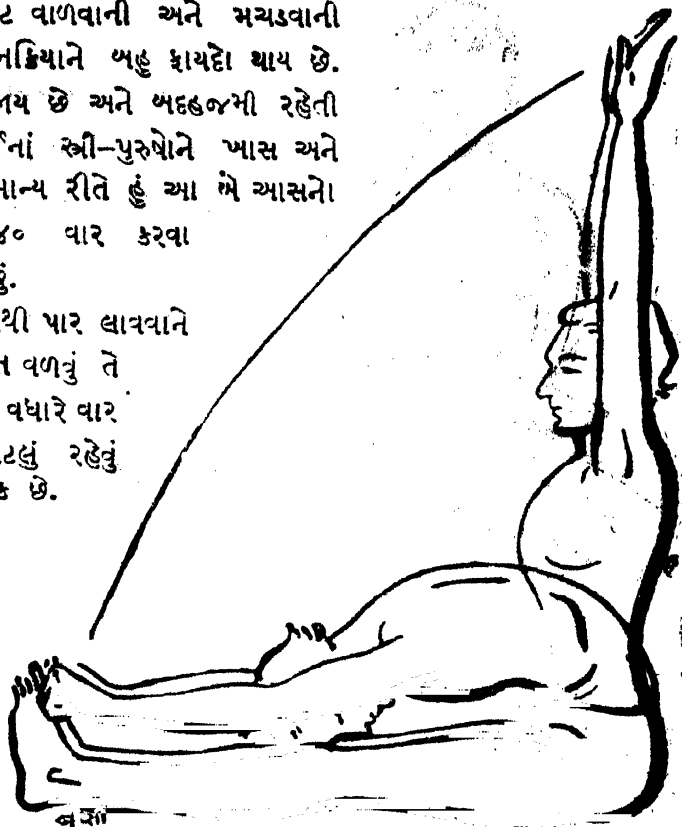 ટ વાળવાની અને મચડવાની
નક્રિયાને બહુ ફાયદો થાય છે.
નય છે અને બદહજમી રહેતી
ઈનાં સ્ત્રી–પુરુષોને ખાસ અને
માન્ય રીતે હું આ બે આસનો
૪૦ વાર કરવા
છું.
થી પાર લાવવાને
ત વળવું તે
વધારે વાર
ટલું રહેવું
ક છે.